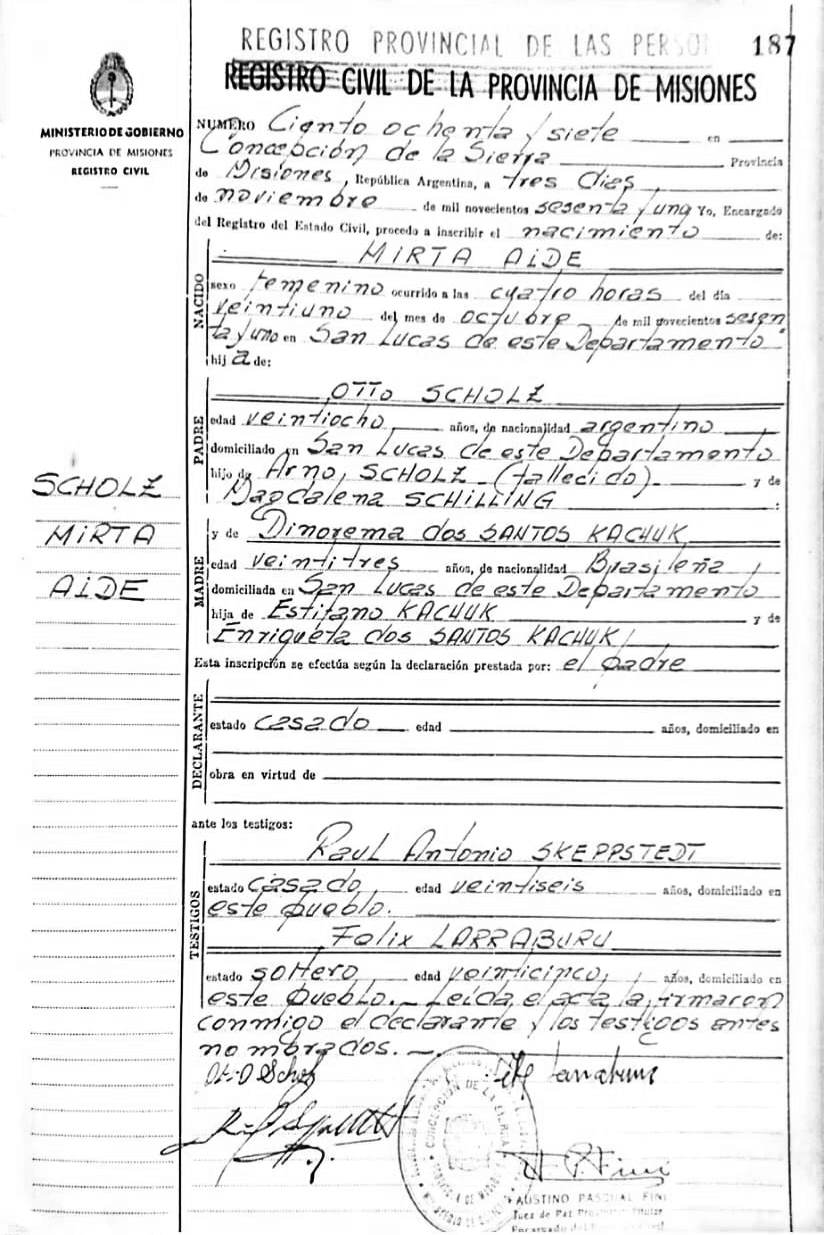 REGISTRO PROVINCIAL DE LAS PERSO
187
REGISTRO CIVIL DE LA PROVINCIA DE MISIONES
MINISTERIO DE GOBIERNO
PROVINCIA DE MISIONES
REGISTRO CIVIL
NUMERO Ciento ochenta y siete en
Concepción de la Sierra Provincia
de Misiones, República Argentina, a tres dias,
de noviembre de mil novecientos sesenta y uno Yo, Encargado
del Registro del Estado Civil, procedo a inscribir el nacimiento de:
NACIDO
MIRTA AIDE
sexo femenino ocurrido a las cuatro horas del día
veintiuno del mes de octubre de mil novecientos sesen
ta y uno en San Lucas de este Departamento
hij a de:
PADRE
OTTO SCHOLZ
edad veintiocho años, de nacionalidad argentino
domiciliado en San Lucas de este Departamento
hijo de Arno, SCHOLZ (fallecido) y de
Magdalena SCHILLING
SCHOLZ
MIRTA
AIDE
MADRE
y de Dinorema dos SANTOS KACHUK
edad veintitres años, de nacionalidad Brasileña,
domiciliada en San Lucas de este Departamento
hija de Estifano KACHUK y de
Enriqueta dos SANTOS KACHUK
Esta inscripción se efectúa según la declaración prestada por: el padre
DECLARANTE
estado casado edad años, domiciliado en
obra en virtud de
ante los testigos:
TESTIGOS
Raul Antonio SKEPPSTEDT
estado casado, edad veintiseis años, domiciliado en
este pueblo.
Felix LARRABURU
estado soltero, edad veinticinco, años, domiciliado en
este pueblo. Leida el acta la firmaron
conmigo el declarante y los testigos antes
nombrados.
Otto Scholz
FAUSTINO PASCUAL FINI
Juez de Paz Titular